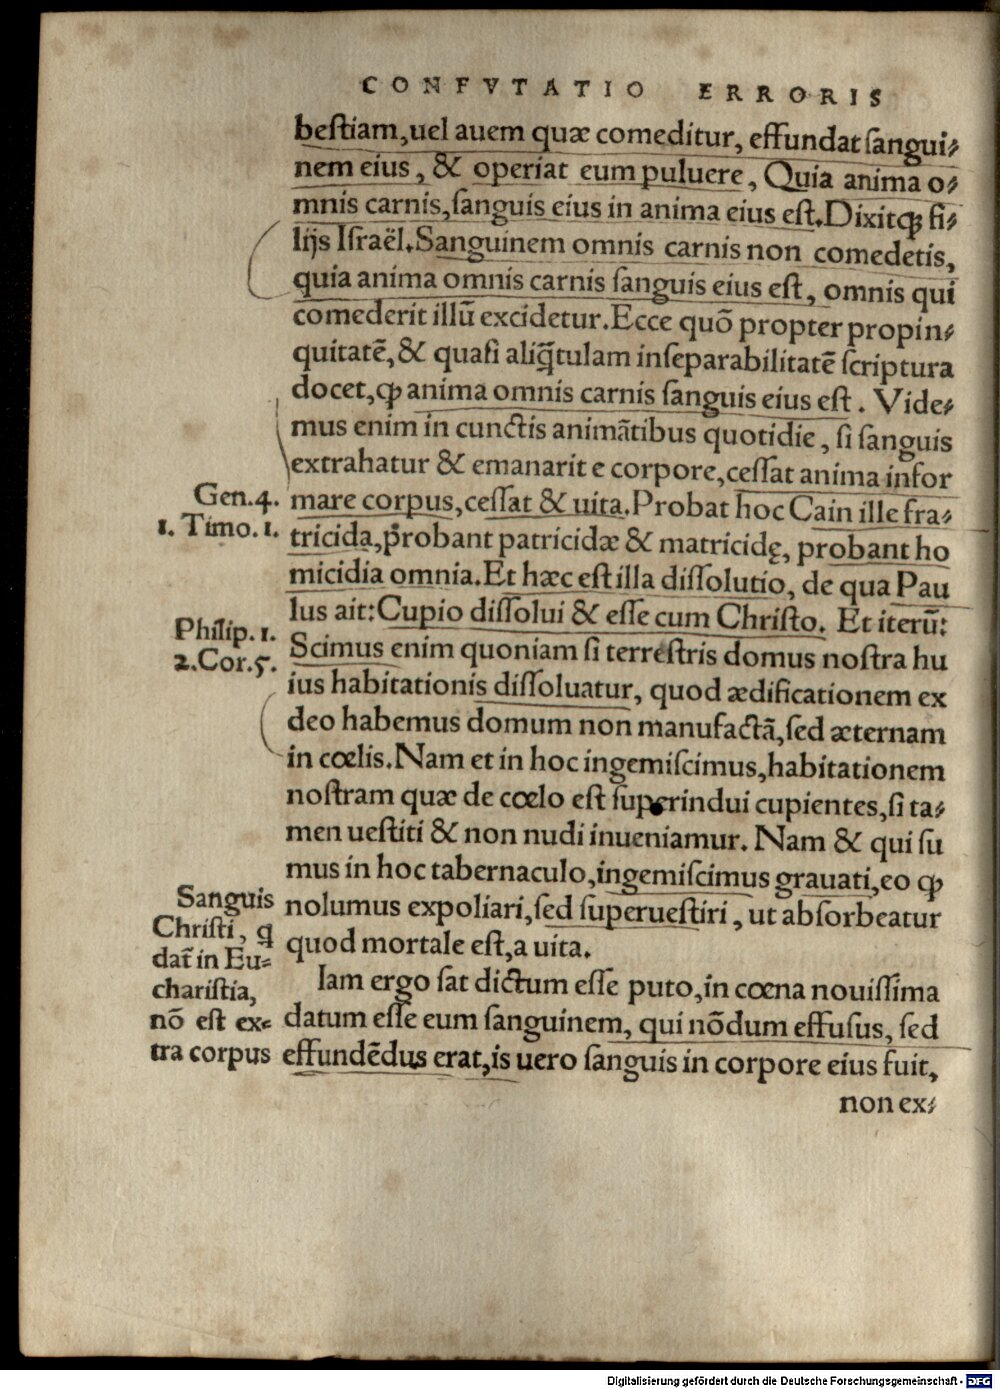 CONFVTATIO ERRORIS
beſtiam,uel auem quæ comeditur, effundat ſangui⸗
nem eius, & operiat eum puluere, Quia anima o⸗
mnis carnis,ſanguis eius in anima eius eſt.Dixitꝙ fi⸗
lijs Iſraël.Sanguinem omnis carnis non comedetis,
quia anima omnis carnis ſanguis eius eſt, omnis qui
comederit illū excidetur.Ecce quō propter propin⸗
quitatē,& quaſi aliq̄tulam inſeparabilitatē ſcriptura
docet,ꝙ anima omnis carnis ſanguis eius eſt. Vide⸗
mus enim in cunctis animātibus quotidie, ſi ſanguis
extrahatur & emanarit e corpore,ceſſat anima infor
Gen.4. mare corpus,ceſſat & uita.Probat hoc Cain ille fra⸗
1. Timo.1. tricida,probant patricidæ & matricidę, probant ho
micidia omnia.Et hæc eſt illa diſſolutio, de qua Pau
lus ait:Cupio diſſolui & eſſe cum Chriſto. Et iterū:
Philip.1.
2.Cor.5. Scimus enim quoniam ſi terreſtris domus noſtra hu
ius habitationis diſſoluatur, quod ædificationem ex
deo habemus domum non manufactā,ſed æternam
in cœlis.Nam et in hoc ingemiſcimus,habitationem
noſtram quæ de cœlo eſt ſuperindui cupientes,ſi ta⸗
men ueſtiti & non nudi inueniamur. Nam & qui ſu
mus in hoc tabernaculo,ingemiſcimus grauati,eo ꝙ
nolumus expoliari,ſed ſuperueſtiri, ut abſorbeatur
quod mortale eſt,a uita.
Iam ergo ſat dictum eſſe puto,in cœna nouiſſima
datum eſſe eum ſanguinem, qui nōdum effuſus, ſed
effundēdus erat,is uero ſanguis in corpore eius fuit,
non ex⸗
Sanguis
Chriſti, q
dat̄ in Eu⸗
chariſtia,
nō eſt ex⸗
tra corpus
Digitalisierung gefördert durch die Deutsche Forschungsgemeinschaft - DFG